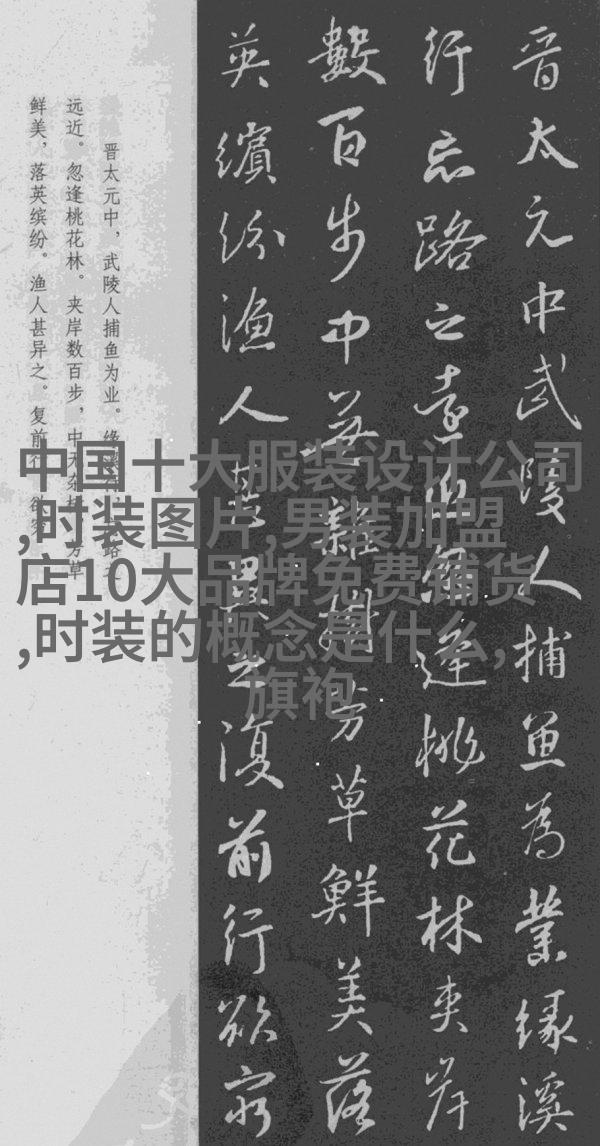 晋太元中武陵人捕魚為業緣溪
行忘路之遠近忽逢桃花林夾岸
數百步中無雜樹芳草鮮美落
英繽紛漁人甚異之復前行欲窮
晋太元中，武陵人捕鱼为业。缘溪行，忘路之
远近。忽逢桃花林。夹岸数百步，中无杂树，芳草
鲜美，落英缤纷。渔人甚异之。复前行，欲穷
中国十大服装设计公司
,时装图片,男装加盟
店10大品牌免费铺货
,时装的概念是什么,
旗袍